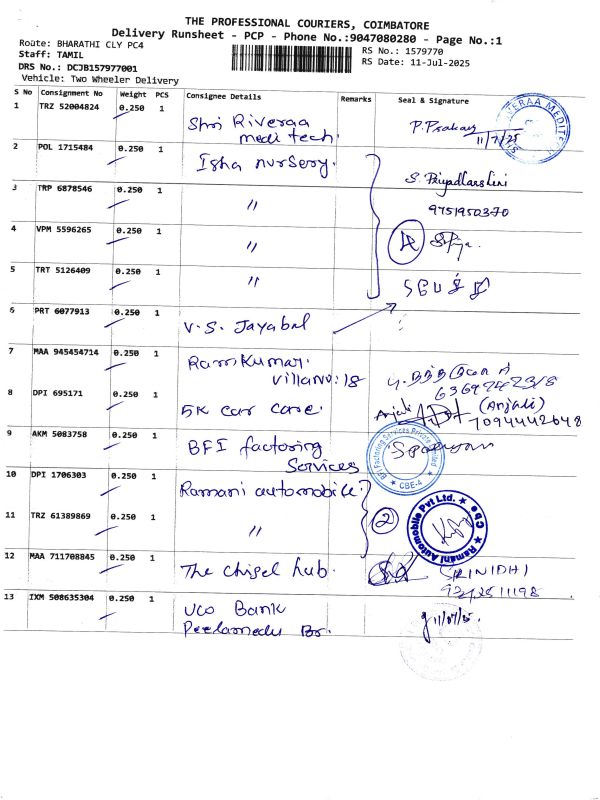 THE PROFESSIONAL COURIERS, COIMBATORE
Delivery Runsheet - PCP - Phone No.:9047080280 - Page No.:1
Route: BHARATHI CLY PC4
RS No.: 1579770
Staff: TAMIL
RS Date: 11-Jul-2025
DRS No.: DCJB157977001
Vehicle: Two Wheeler Delivery
S No Consignment No Weight PCS Consignee Details Remarks Seal & Signature
1 TRZ 52004824 0.250 1 Shri Riveraa
medi tech. P. Prakay 11/7/25
2 POL 1715484 0.250 1 Isha nursery.
3 TRP 6878546 0.250 1 " S. Priyadharshini
9751950370
4 VPM 5596265 0.250 1 " 4
5 TRT 5126409 0.250 1 "
6 PRT 6077913 0.250 1 V.S. Jayabal
7 MAA 945454714 0.250 1 Ramkumar.
villanv:18
8 DPI 695171 0.250 1 5K car care. Anjali (Anjali)
7094442648
9 AKM 5083758 0.250 1 BFI factoring
Services
BFI Factoring Services Private Limited
CBE-4
10 DPI 1706303 0.250 1 Ramani automobile.
11 TRZ 61389869 0.250 1 " 2
Ramani Automobile Pvt Ltd. Cbe
12 MAA 711708845 0.250 1 The chisel hub. SRINIDHI
13 IXM 508635304 0.250 1 UCO Bank
Peelamedu Br. 11/07/25.